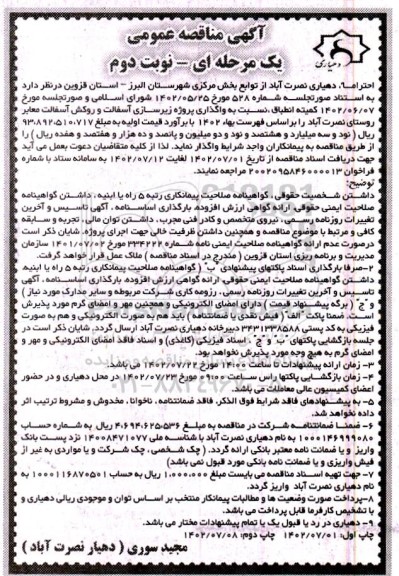 آگهی مناقصه عمومی
یک مرحله ای - نوبت دوم
دهیاری
احتراماً، دهیاری نصرت آباد از توابع بخش مرکزی شهرستان البرز - استان قزوین درنظر دارد
به استناد صورتجلسه شماره ۵۲۸ مورخ ۱۴۰۲/۰۵/۲۵ شورای اسلامی و صورتجلسه مورخ
۱۴۰۲/۰۶/۰۷ کمیته انطباق، نسبت به واگذاری پروژه زیرسازی آسفالت و روکش آسفالت معابر
روستای نصرت آباد را براساس فهرست بها، ۱۴۰۲ با برآورد قیمت اولیه به مبلغ ۹۳،۸۹۲،۵۱۰،۷۱۷
ریال ( نود و سه میلیارد و هشتصد و نود و دو میلیون و پانصد و ده هزار و هفتصد و هفده ریال ) را
از طریق مناقصه به پیمانکاران واجد شرایط واگذار نماید. لذا از کلیه متقاضیان دعوت بعمل می آید
جهت دریافت اسناد مناقصه از تاریخ ۱۴۰۲/۰۷/۰۱ لغایت ۱۴۰۲/۰۷/۱۲ به سامانه ستاد با شماره
فراخوان ۲۰۰۲۰۹۵۸۴۶۰۰۰۰۱۳ مراجعه نمایند.
توضیح:
داشتن شخصیت حقوقی، گواهینامه صلاحیت پیمانکاری رتبه ۵ راه یا ابنیه، داشتن گواهینامه
صلاحیت ایمنی حقوقی، ارائه گواهی ارزش افزوده، بارگذاری اساسنامه، آگهی تاسیس و آخرین
تغییرات روزنامه رسمی، نیروی متخصص و کادر فنی مجرب، داشتن توان مالی، تجربه و سابقه
کافی و مرتبط با موضوع مناقصه و همچنین داشتن ظرفیت خالی جهت اجرای پروژه. شایان ذکر است
درصورت عدم ارائه گواهینامه صلاحیت ایمنی نامه شماره ۳۳۴۲۲۲ مورخ ۱۴۰۱/۰۷/۰۲ سازمان
مدیریت و برنامه ریزی استان قزوین ( مندرج در اسناد مناقصه ) ملاک عمل قرار خواهد گرفت.
۲-صرفا بارگذاری اسناد پاکتهای پیشنهادی "ب" ( گواهینامه صلاحیت پیمانکاری رتبه ۵ راه یا ابنیه،
داشتن گواهینامه صلاحیت ایمنی حقوقی، ارائه گواهی ارزش افزوده، بارگذاری اساسنامه، آگهی
تاسیس و آخرین تغییرات روزنامه رسمی، رزومه کاری شرکت مربوطه و سایر مدارک مورد نیاز )
و "ج" ( برگه پیشنهاد قیمت ) دارای امضای الکترونیکی و همچنین مهر و امضای گرم مورد پذیرش
است. ضمنا پاکت "الف" ( فیش نقدی یا ضمانتنامه ) باید هم به صورت الکترونیکی و هم به صورت
فیزیکی به کد پستی ۳۴۳۱۳۳۸۵۸۸ دبیرخانه دهیاری نصرت آباد ارسال گردد. شایان ذکر است در
جلسه بازگشایی پاکتهای "ب" و "ج"، اسناد فیزیکی (کاغذی) و اسناد فاقد امضای الکترونیکی و مهر و
امضای گرم به هیچ وجه مورد پذیرش نخواهد بود.
۳- زمان ارائه پیشنهادات تا ساعت ۱۴:۰۰ مورخ ۱۴۰۲/۰۷/۲۲ می باشد.
۴- زمان بازگشایی پاکتها راس ساعت ۰۹:۰۰ مورخ ۱۴۰۲/۰۷/۲۳ در محل دهیاری و در حضور
اعضای کمیسیون عالی معاملات می باشد.
۵- به پیشنهادهای فاقد شرایط فوق الذکر، فاقد ضمانتنامه، ناخوانا، مخدوش و مشروط ترتیب اثر
داده نخواهد شد.
۶- ضمنا ضمانتنامه شرکت در مناقصه به مبلغ ۴،۶۹۴،۶۲۵،۵۳۶ ریال، به شماره حساب
۱۰۰۰۱۴۶۹۹۹۰۸۰ به نام دهیاری نصرت آباد با شناسه ملی ۱۴۰۰۸۴۷۱۰۷۷ نزد پست بانک
واریز و یا ضمانت نامه معتبر بانکی ارائه گردد. ( چک شخصی، چک شرکت و یا مواردی به غیر از
فیش واریزی و یا ضمانت نامه بانکی مورد قبول نمی باشد)
۷- جهت تهیه اسناد مناقصه می بایست مبلغ ۱،۰۰۰،۰۰۰ ریال به حساب ۱۰۰۰۱۱۶۸۷۰۵۰۱ به
نام دهیاری نصرت آباد واریز گردد.
۸-پرداخت صورت وضعیت ها و مطالبات پیمانکار منتخب بر اساس توان و موجودی ریالی دهیاری و
با تشخیص کارفرما قابل پرداخت می باشد.
۹- دهیاری در رد یا قبول یک یا تمام پیشنهادات مختار می باشد.
چاپ اول: ۱۴۰۲/۰۷/۰۱ چاپ دوم: ۱۴۰۲/۰۷/۰۸
مجید سوری ( دهیار نصرت آباد )